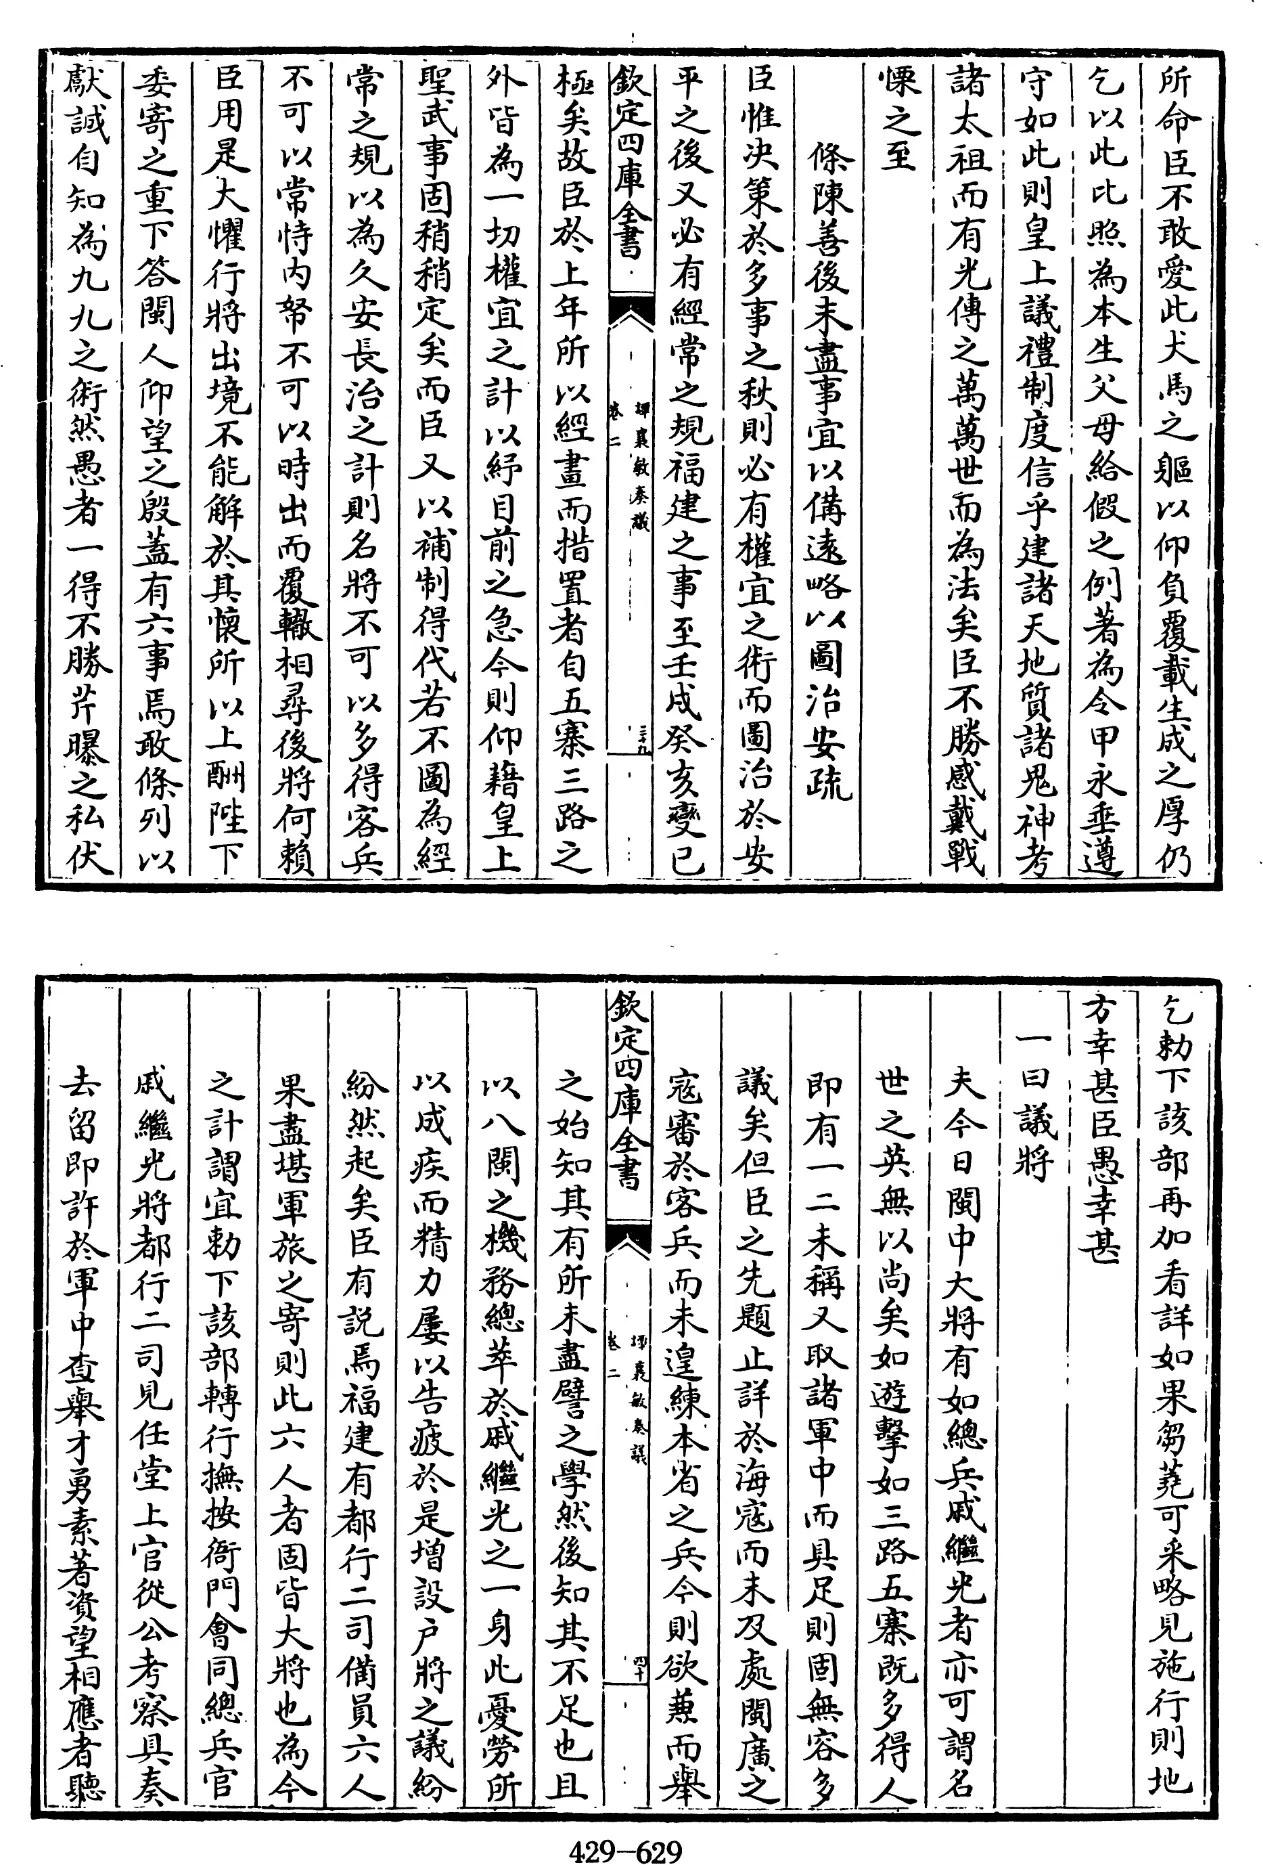 所命臣不敢愛此犬馬之軀以仰負覆載生成之厚仍
乞以此比照為本生父母給假之例著為令甲永垂遵
守如此則皇上議禮制度信乎建諸天地質諸鬼神考
諸太祖而有光傳之萬萬世而為法矣臣不勝感戴戰
慄之至
條陳善後未盡事宜以備遠略以圖治安疏
臣惟决策於多事之秋則必有權宜之術而圖治於安
平之後又必有經常之規福建之事至壬戌癸亥變已
欽定四庫全書
譚襄敏奏議
卷二
三十九
極矣故臣於上年所以經畫而措置者自五寨三路之
外皆為一切權宜之計以紓目前之急今則仰藉皇上
聖武事固稍稍定矣而臣又以補制得代若不圖為經
常之規以為久安長治之計則名將不可以多得客兵
不可以常恃内帑不可以時出而覆轍相尋後將何賴
臣用是大懼行將出境不能解於其懷所以上酬陛下
委寄之重下答閩人仰望之殷蓋有六事焉敢條列以
獻誠自知為九九之術然愚者一得不勝芹曝之私伏
乞勅下該部再加看詳如果芻蕘可采略見施行則地
方幸甚臣愚幸甚
一曰議將
夫今日閩中大將有如總兵戚繼光者亦可謂名
世之英無以尚矣如遊擊如三路五寨既多得人
即有一二未稱又取諸軍中而具足則固無容多
議矣但臣之先題止詳於海寇而未及處閩廣之
寇審於客兵而未遑練本省之兵今則欲兼而舉
欽定四庫全書
譚襄敏奏議
卷二
四十
之始知其有所未盡譬之學然後知其不足也且
以八閩之機務總萃於戚繼光之一身此憂勞所
以成疾而精力屢以告疲於是增設戶將之議紛
紛然起矣臣有説焉福建有都行二司僃員六人
果盡堪軍旅之寄則此六人者固皆大將也為今
之計謂宜勅下該部轉行撫按衙門會同總兵官
戚繼光將都行二司見任堂上官從公考察具奏
去留即許於軍中查舉才勇素著資望相應者聽
429-629